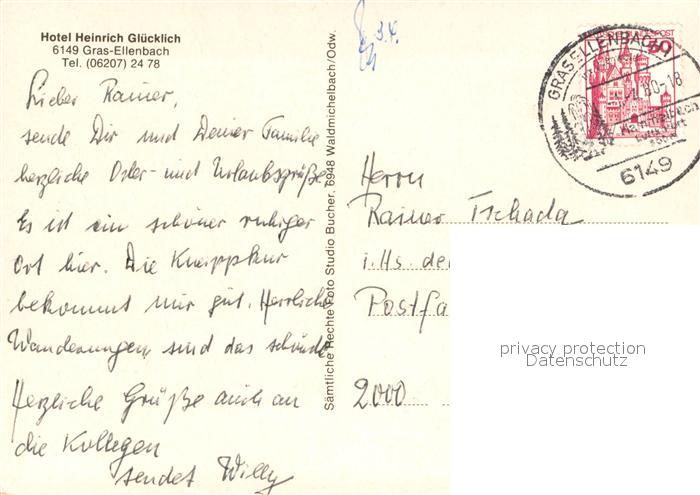 Hotel Heinrich Glücklich
6149 Gras-Ellenbach
Tel. (06207) 24 78
Lieber Rainer,
sende Dir und Deiner Familie
herzliche Oster- und Urlaubsgrüße
Es ist ein schöner ruhiger
Ort hier. Die Kneippkur
bekommt mir gut. Herrliche
Wanderungen, sind das schönste
Herzliche Grüße auch an
die Kollegen
sendet Willy
Sämtliche Rechte Foto Studio Bucher, 6948 Waldmichelbach/Odw.
3.4.
GRASELLENBACH
80-18
6149
60
Herrn
Rainer Tschada
i. Hs. de
Postfa
2000
privacy protection
Datenschutz